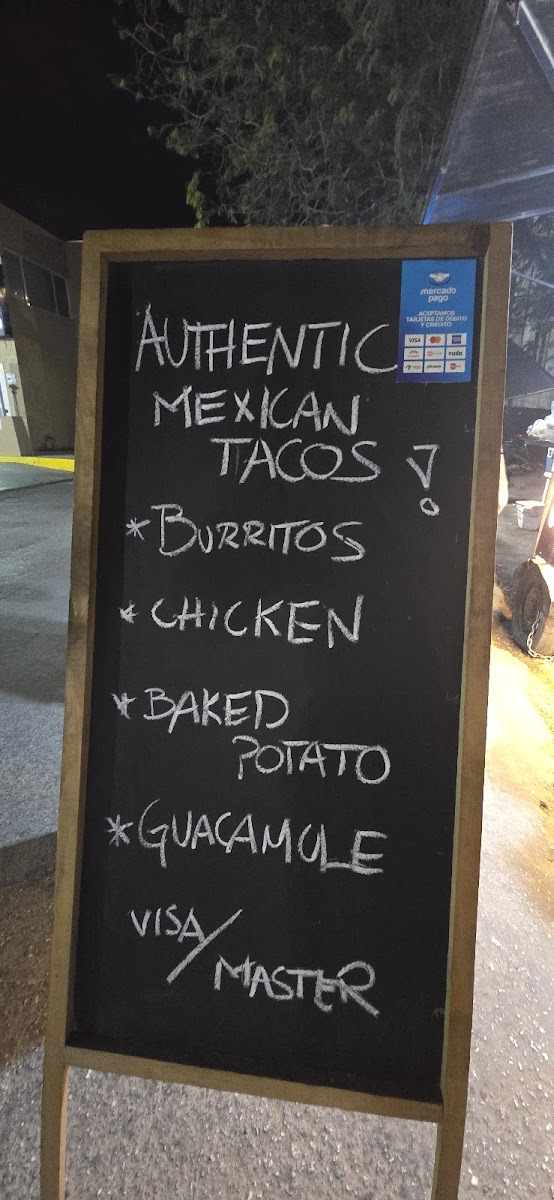 mercado
pago
ACEPTAMOS
TARJETAS DE DÉBITO
Y CRÉDITO
VISA
AUTHENTIC
MEXICAN
TACOS !
* BURRITOS
* CHICKEN
* BAKED
POTATO
* GUACAMOLE
VISA/
MASTER